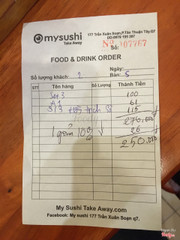 mysushi
Take Away
177 Trần Xuân Soạn, P. Tân Thuận Tây, Q7
Số:
FOOD & DRINK ORDER
Ngày:
Số lượng khách: 2 Bàn: 5
STT Tên hàng Số Lượng Thành Tiền
Set 3 100
61
115
276.000
1 giảm 10% 26
250.000
My Sushi Take Away.com
Facebook: My sushi 177 Trần Xuân Soạn q7.